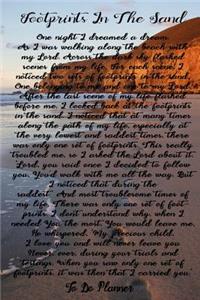 Footprints In The Sand
One night I dreamed a dream.
As I was walking along the beach with
my Lord. Across the dark sky flashed
scenes from my life. For each scene, I
noticed two sets of footprints in the sand,
One belonging to me and one to my Lord.
After the last scene of my life flashed
before me, I looked back at the footprints
in the sand. I noticed that at many times
along the path of my life, especially at
the very lowest and saddest times, there
was only one set of footprints. This really
troubled me, so I asked the Lord about it.
Lord, you said once I decided to follow
you, You'd walk with me all the way. But
I noticed that during the
saddest And most troublesome times of
my life, There was only one set of foot
prints. I don't understand why, when I
needed You the most, You would leave me.
He whispered, My precious child,
I love you and will never leave you
Never, ever, during your trials and
testings. When you saw only one set of
footprints, it was then that I carried you.
To Do Planner